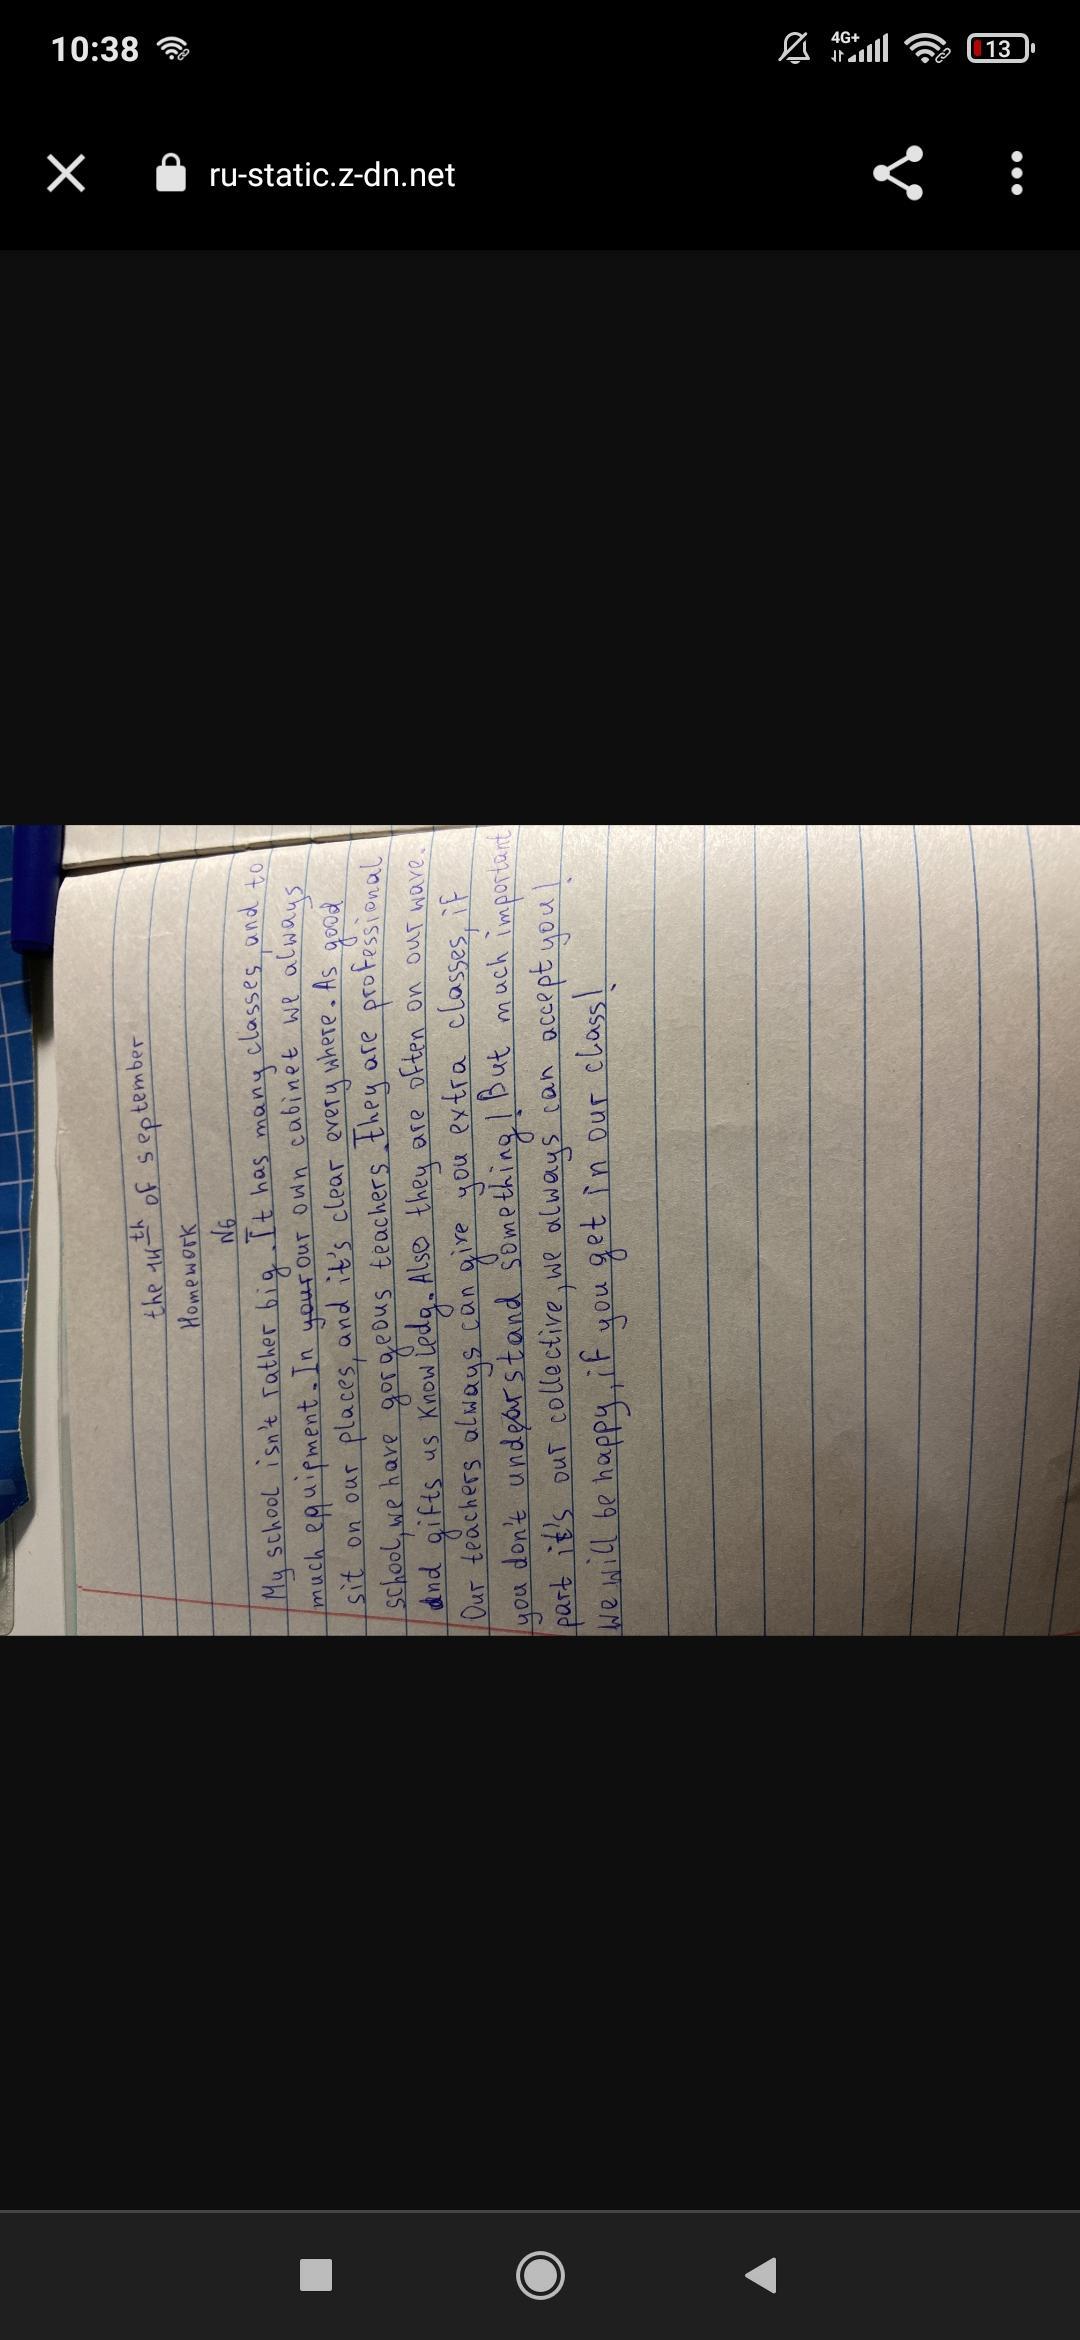 10:38
4G+
13
ru-static.z-dn.net
the 14th of september
Homework
N6
My school isn't rather big. It has many classes, and to
much equipment. In your our own cabinet we always
sit on our places, and it's clear every where. As good
school, we have gorgeous teachers. They are professional
and gifts us knowledg. Also they are often on our wave.
Our teachers always can give you extra classes, if
you don't understand something! But much important
part it's our collective, we always can accept you!
We will be happy, if you get in our class!